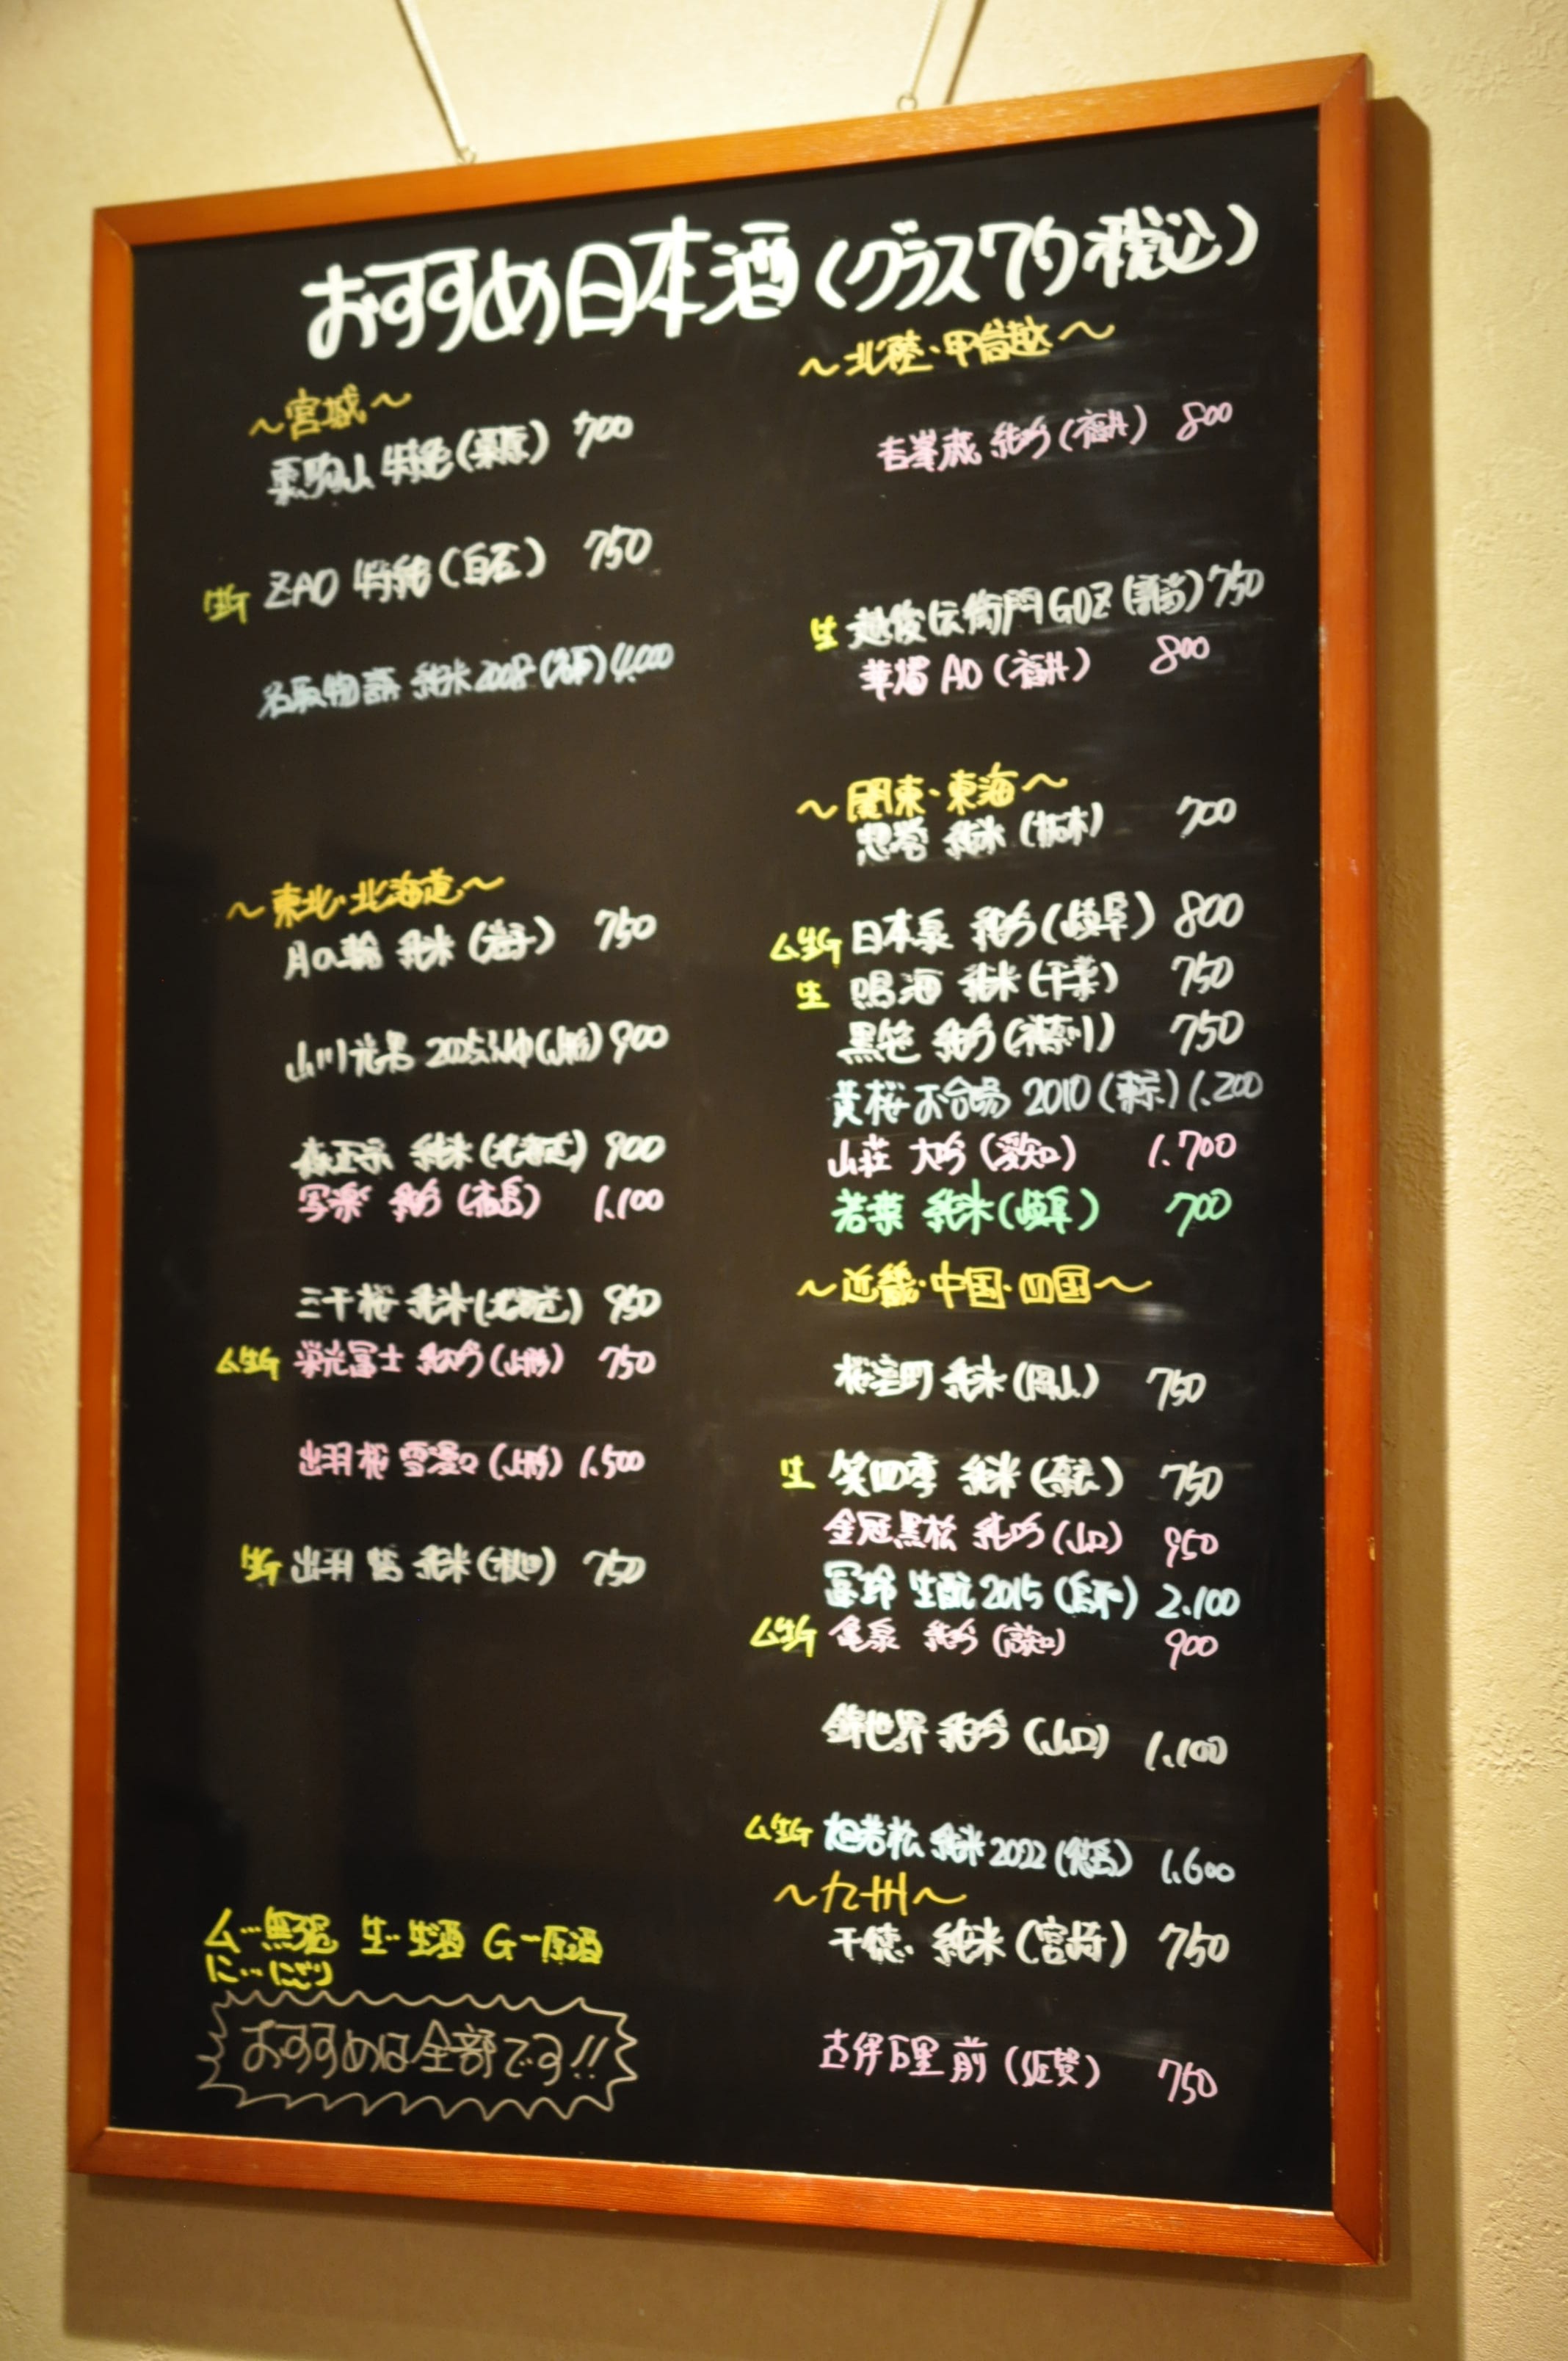 おすすめ日本酒(グラス7勺税込)
~宮城~
栗駒山 特純(栗原) 700
生G ZAO 特純(白石) 750
名取物語 純米2008(名取) 4,000
~東北・北海道~
月の輪 純米(岩手) 750
山川光男 2025(山形) 900
森正宗 純米(北海道) 900
写楽 純吟(福島) 1.100
三千桜 純米(北海道) 950
ム生G 栄光冨士 純吟(山形) 750
出羽桜 雪漫々(山形) 1.500
生G 出羽鶴 純米(秋田) 750
ム…無ろ過 生…生酒 G…原酒
に…にごり
おすすめは全部です!!
~北陸・甲信越~
吉峯蔵 純吟(福井) 800
生 越後伝衛門GOZ(新潟) 750
華燭AO(福井) 800
~関東・東海~
惣誉 純米(栃木) 700
ム生G 日本泉 純吟(岐阜) 800
生 鳴海 純米(千葉) 750
黒笹 純吟(神奈川) 750
黄桜お台場 2010(東京) 1.200
山荘 大吟(愛知) 1.700
若菜 純米(岐阜) 700
~近畿・中国・四国~
桜室町 純米(岡山) 750
生 笑四季 純米(滋賀) 750
金冠黒松 純吟(山口) 950
冨玲 生酛2015(鳥取) 2.100
ム生G 亀泉 純吟(高知) 900
錦世界 純吟(山口) 1.100
ム生G 旭若松 純米2022(徳島) 1.600
~九州~
千徳 純米(宮崎) 750
古伊万里 前(佐賀) 750